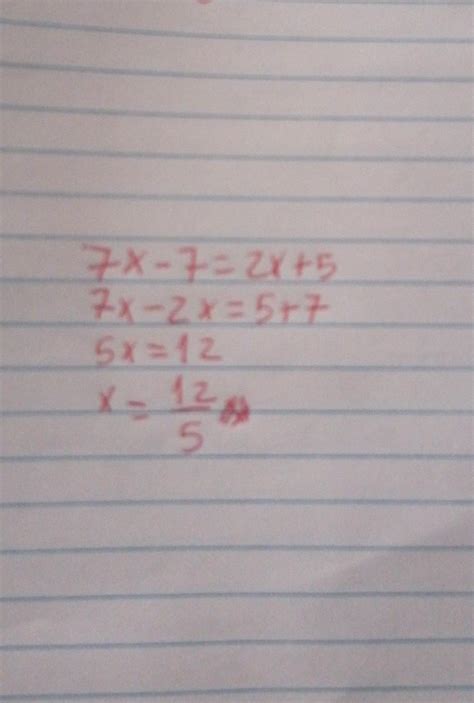 7x-7=2x+5
7x-2x=5+7
5x=12
x=12/5